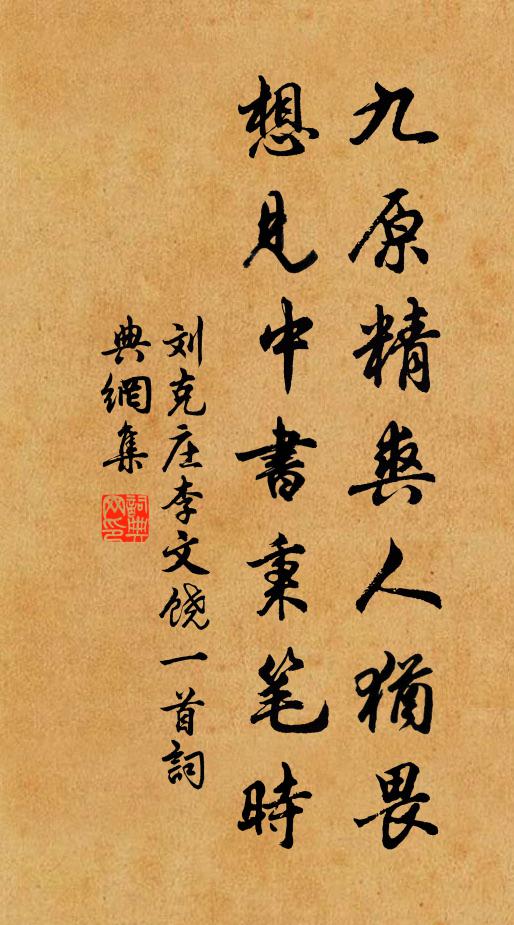 九原精爽人猶畏
想見中書秉笔時
刘克庄李文饶一首詞
典網集
詞典網印